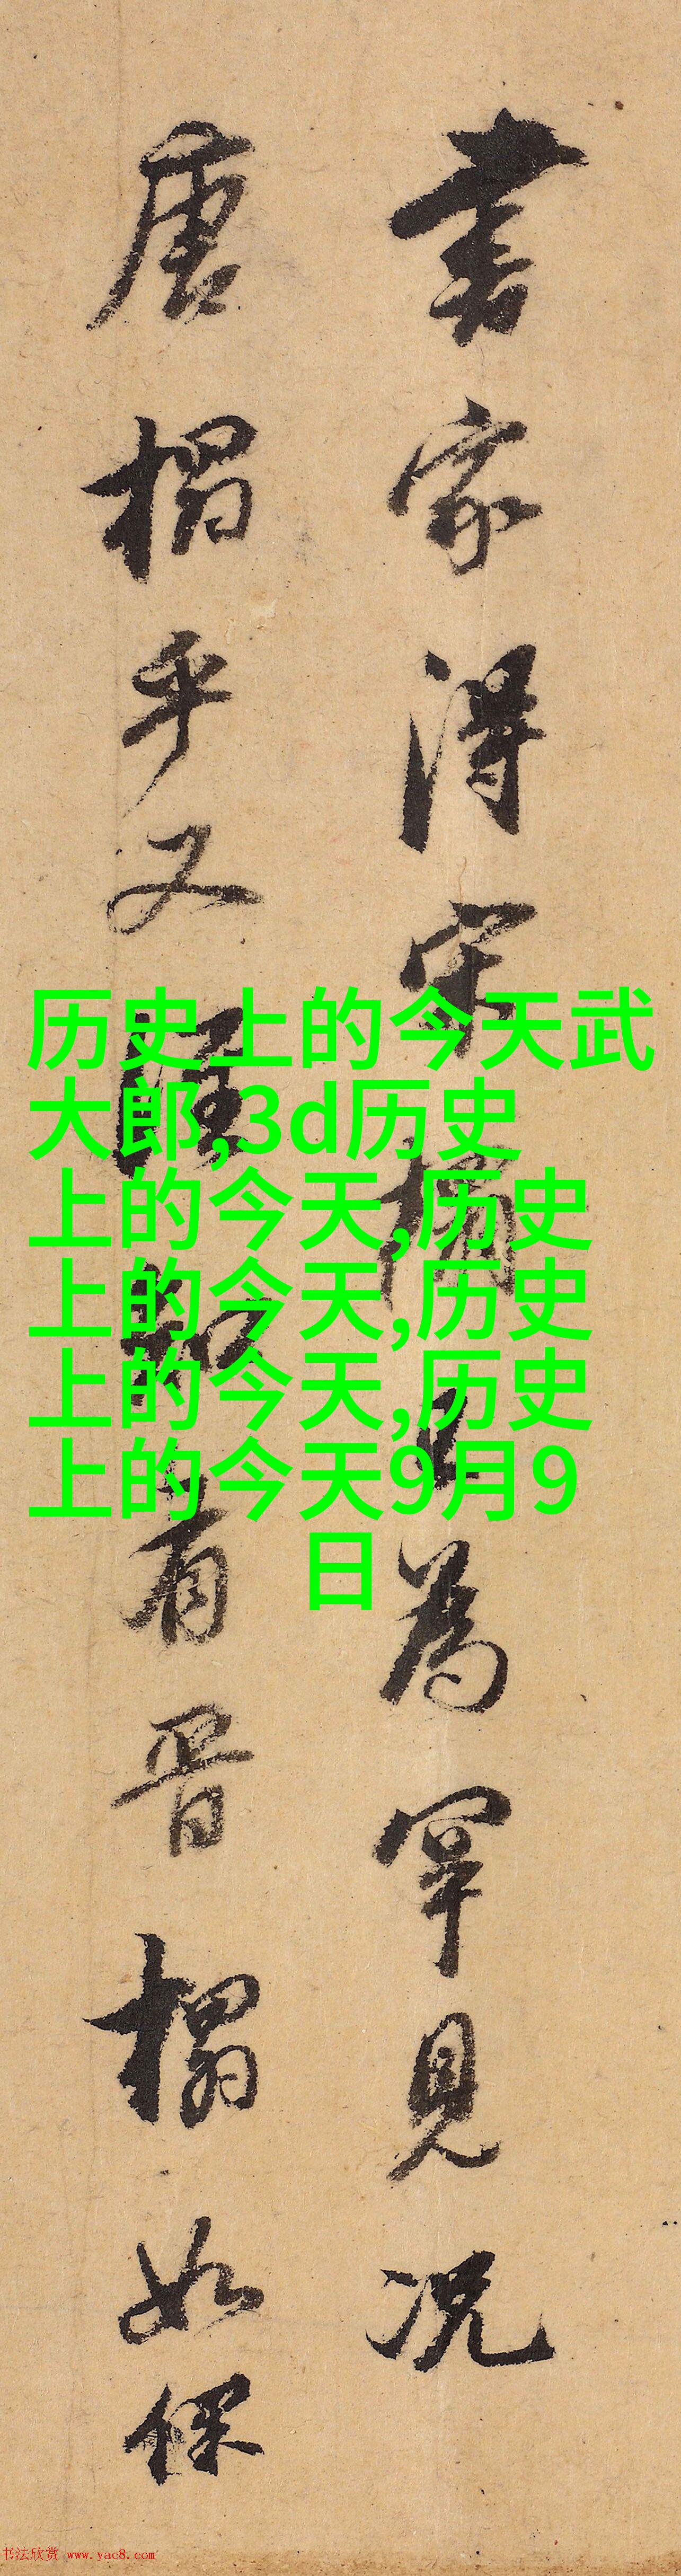 書家得宋搨已為罕見況
唐搨乎又知有晉搨如保
历史上的今天武
大郎,3d历史
上的今天,历史
上的今天,历史
上的今天,历史
上的今天9月9
日
书法欣赏 www.yac8.com